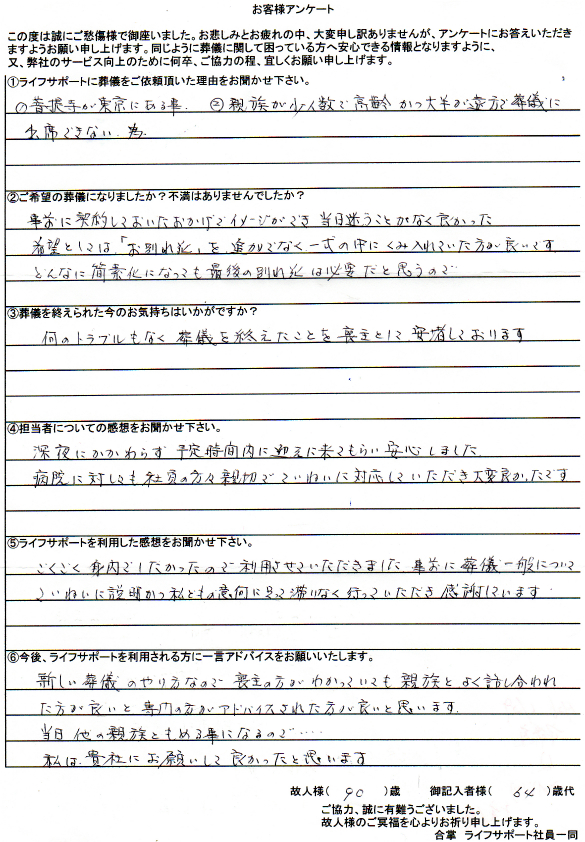 お客様アンケート
この度は誠にご愁傷様で御座いました。お悲しみとお疲れの中、大変申し訳ありませんが、アンケートにお答えいただき
ますようお願い申し上げます。同じように葬儀に関して困っている方へ安心できる情報となりますように、
又、弊社のサービス向上のために何卒、ご協力の程、宜しくお願い申し上げます。
①ライフサポートに葬儀をご依頼頂いた理由をお聞かせ下さい。
①菩提寺が東京にある事. ②親族が少人数で高齢かつ大半が遠方で葬儀に
出席できない.為.
②ご希望の葬儀になりましたか？不満はありませんでしたか？
事前に契約しておいたおかげでイメージができ 当日迷うことがなく良かった
希望としては「お別れ式」を追加でなく一式の中にくみ入れていた方が良いです
どんなに簡素化になっても最後の別れ式は必要だと思うので
③葬儀を終えられた今のお気持ちはいかがですか？
何のトラブルもなく葬儀を終えたことを喪主として安堵しております
④担当者についての感想をお聞かせ下さい。
深夜にかかわらず 予定時間内に迎えに来てもらい安心しました.
病院に対しても社員の方々親切でていねいに対応していただき大変良かったです
⑤ライフサポートを利用した感想をお聞かせ下さい。
ごくごく身内でしたかったので利用させていただきました 事前に葬儀一般について
ていねいに説明かつ私どもの意向に沿って滞りなく行っていただき感謝しています.
⑥今後、ライフサポートを利用される方に一言アドバイスをお願いいたします。
新しい葬儀のやり方なので喪主の方がわかっていても親族とよく話し合われ
た方が良いと専門の方がアドバイスされた方が良いと思います.
当日他の親族ともめる事になるので・・・・
私は.貴社にお願いして良かったと思います
故人様( 90 )歳 御記入者様( 64 )歳代
ご協力、誠に有難うございました。
故人様のご冥福を心よりお祈り申し上げます。
合掌 ライフサポート社員一同